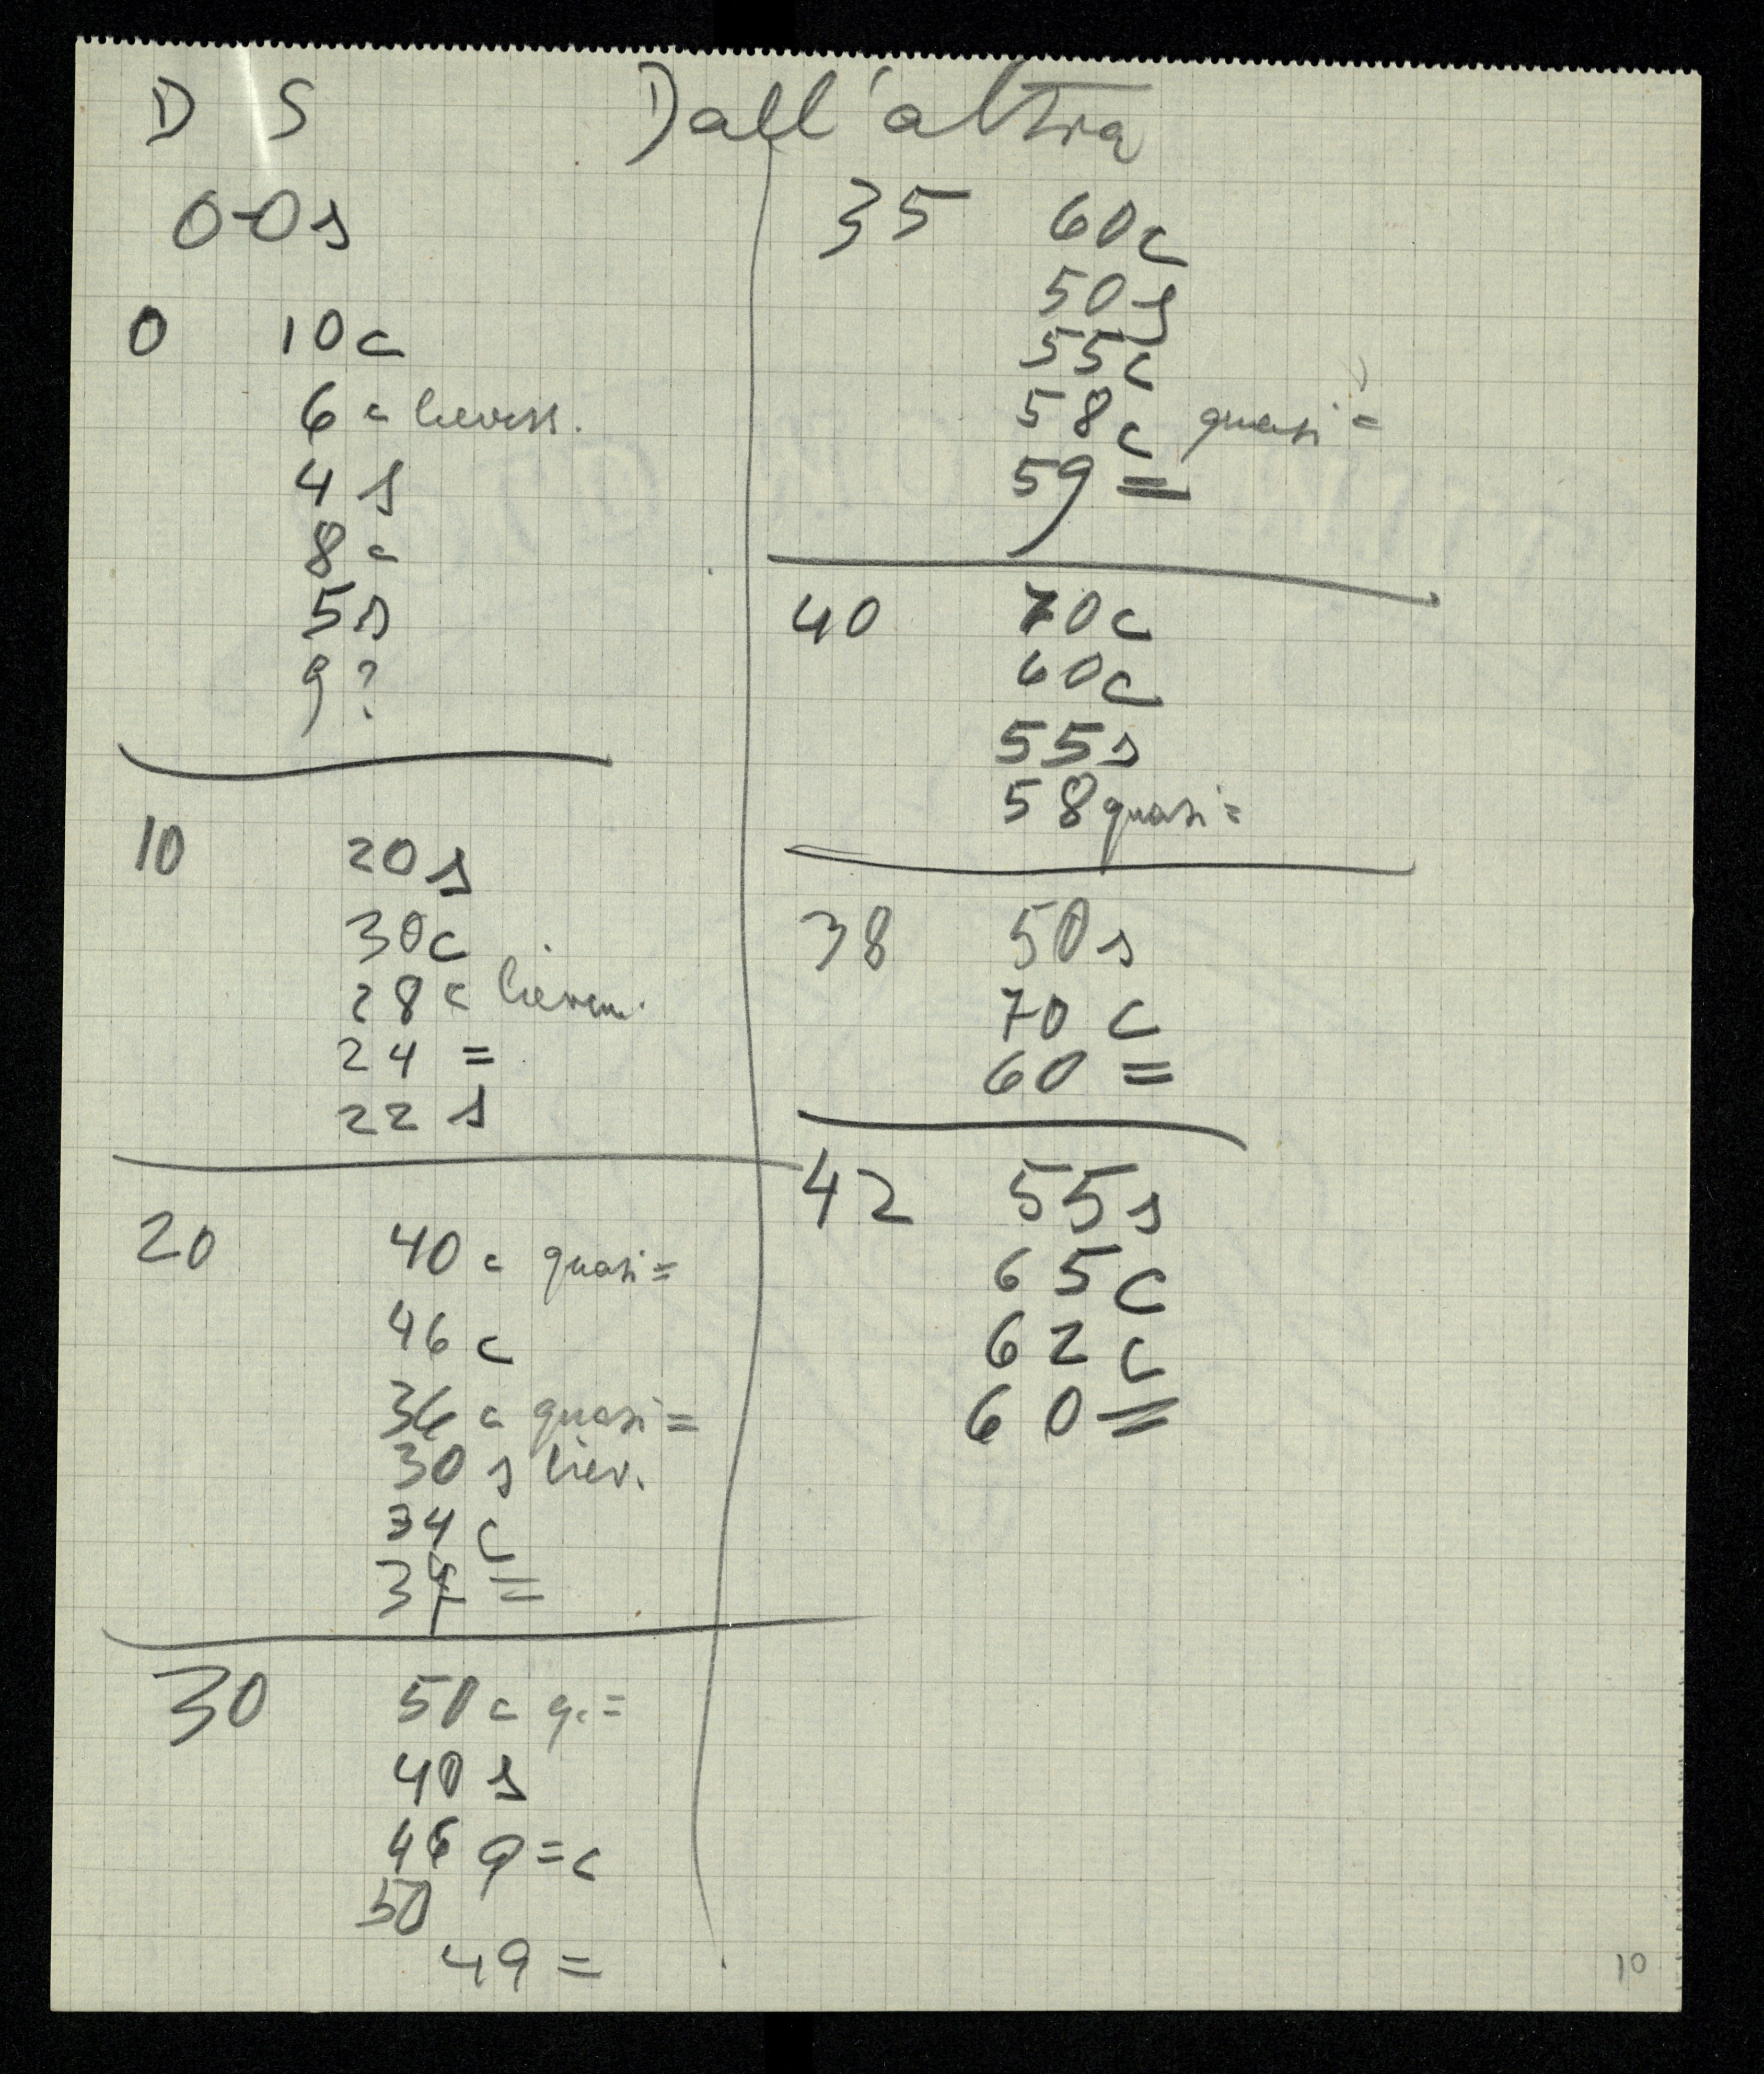 D S
0-0 s
0 10 c
6 c lieviss.
4 s
8 c
5 s
9 ?
10 20 s
30 c
28 c lievem.
24 =
22 s
20 40 c quasi =
46 c
36 c quasi =
30 s liev.
34 c
37 =
30 50 c q. =
40 s
46 q = c
50
49 =
Dall'altra
35 60 c
50 s
55 c
58 c quasi =
59 =
40 70 c
60 c
55 s
58 quasi =
38 50 s
70 c
60 =
42 55 s
65 c
62 c
60 =
10